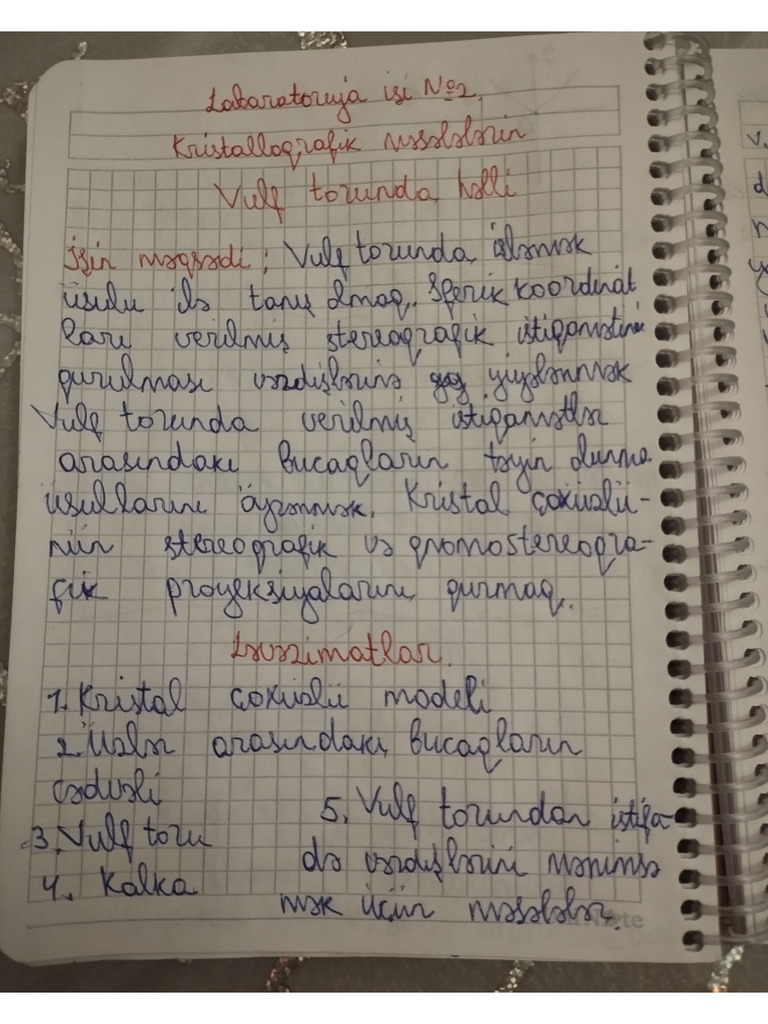 Labaratoruja işi №2.
Kristalloqrafik məsələlərin
Vulf torunda həlli
İşin məqsədi: Vulf torunda işləmək
üsulu ilə tanış olmaq. Sferik koordinat
ları verilmiş stereoqrafik istiqamətin
qurulması vərdişlərinə yiyələnmək
Vulf torunda verilmiş istiqamətlər
arasındakı bucaqların təyin olunma
üsullarını öyrənmək. Kristal çoxüzlü-
nün stereoqrafik və qnomostereoqra-
fik proyeksiyalarını qurmaq.
Ləvazimatlar.
1. Kristal çoxüzlü modeli
2. Üzlər arasındakı bucaqların
cədvəli
3. Vulf toru
4. Kalka
5. Vulf torundan istifa-
də vərdişlərini mənimsə
mək üçün məsələlər.